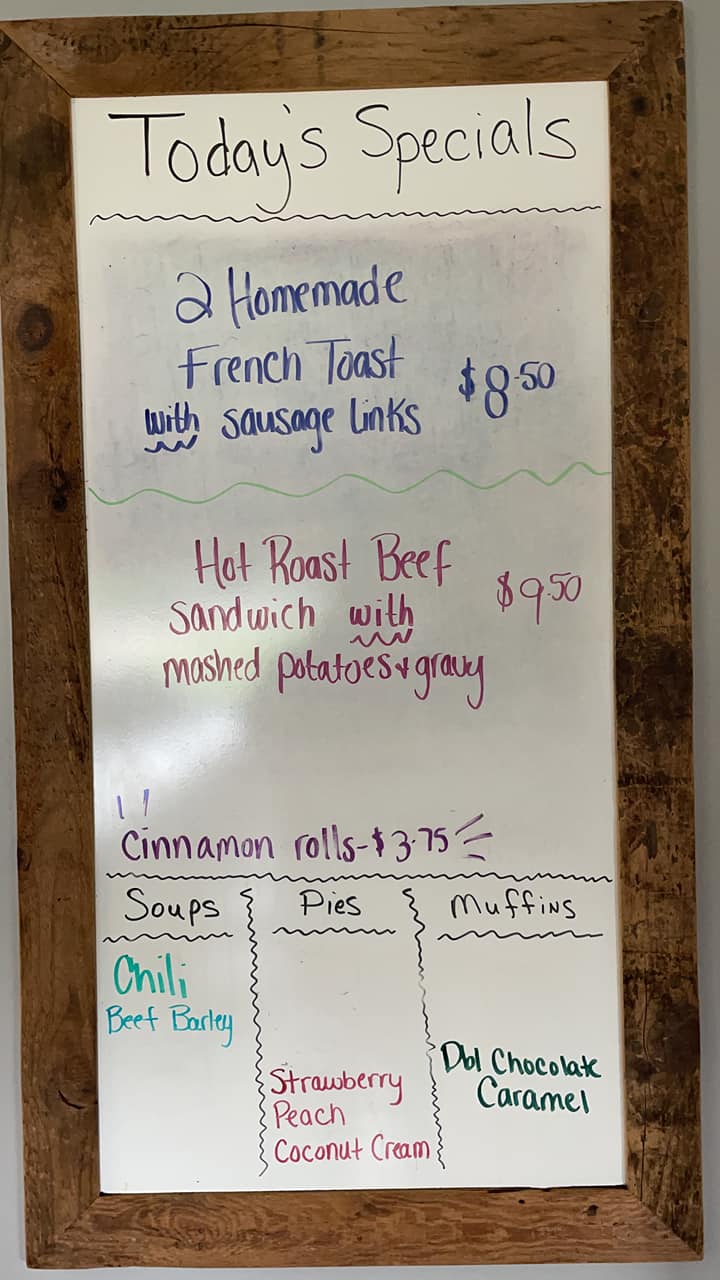 Today's Specials
2 Homemade
French Toast
with sausage links
$8.50
Hot Roast Beef
sandwich with
mashed potatoes & gravy
$9.50
Cinnamon rolls-$3.75
Soups
Chili
Beef Barley
Pies
Strawberry
Peach
Coconut Cream
Muffins
Dbl Chocolate
Caramel